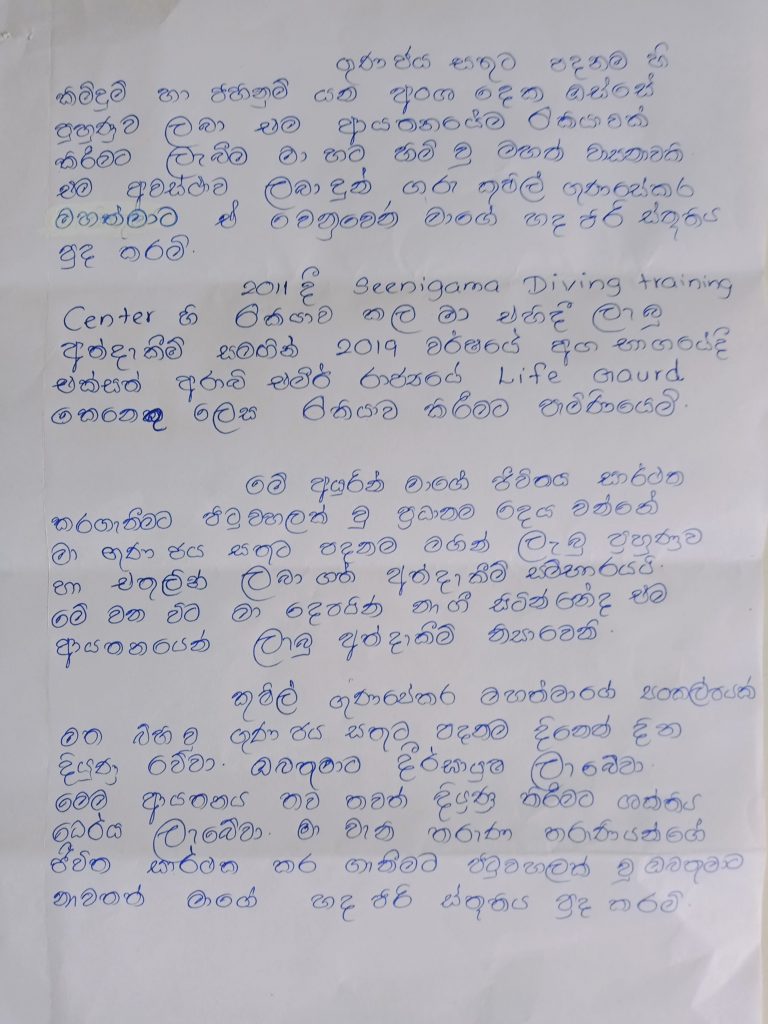 ගුණ ජය සතුට පදනම හි
කිමිදුම් හා පිහිනුම් යන අංශ දෙක ඔස්සේ
පුහුණුව ලබා එම ආයතනයේම රැකියාවක්
කිරීමට ලැබීම මා හට හිමි වු මහත් වාසනාවකි
එම අවස්ථාව ලබා දුන් ගරු කුෂිල් ගුණසේකර
මහත්මාට ඒ වෙනුවෙන් මාගේ හද පිරි ස්තූතිය
පුද කරමි.
2011 දී Seenigama Diving training
Center හි රැකියාව කල මා එහිදී ලැබු
අත්දැකීම් සමගින් 2019 වර්ෂයේ අග භාගයේදී
එක්සත් අරාබි එමීර් රාජ්‍යයේ Life Gaurd
කෙනෙකු ලෙස රැකියාව කිරීමට පැමිණියෙමි.
මේ අයුරින් මාගේ ජීවිතය සාර්ථක
කරගැනීමට පිටුවහලක් වු ප්‍රධානම දෙය වන්නේ
මා ගුණ ජය සතුට පදනම මගින් ලැබු පුහුණුව
හා එතුලින් ලබා ගත් අත්දැකීම් සම්භාරයයි.
මේ වන විට මා දෙපයින් නැගී සිටින්නේද එම
ආයතනයෙන් ලැබු අත්දැකීම් නිසාවෙනි.
කුෂිල් ගුණසේකර මහත්මාගේ සංකල්පයක්
මත බිහි වු ගුණ ජය සතුට පදනම දිනෙන් දින
දියුණු වේවා. ඔබතුමාට දීර්ඝායුෂ ලැබේවා.
මෙම ආයතනය තව තවත් දියුණු කිරීමට ශක්තිය
ධෛර්ය ලැබේවා. මා වැනි තරුණ තරුණියන්ගේ
ජීවිත සාර්ථක කර ගැනීමට පිටුවහලක් වූ ඔබතුමාට
නැවතත් මාගේ හද පිරි ස්තූතිය පුද කරමි.